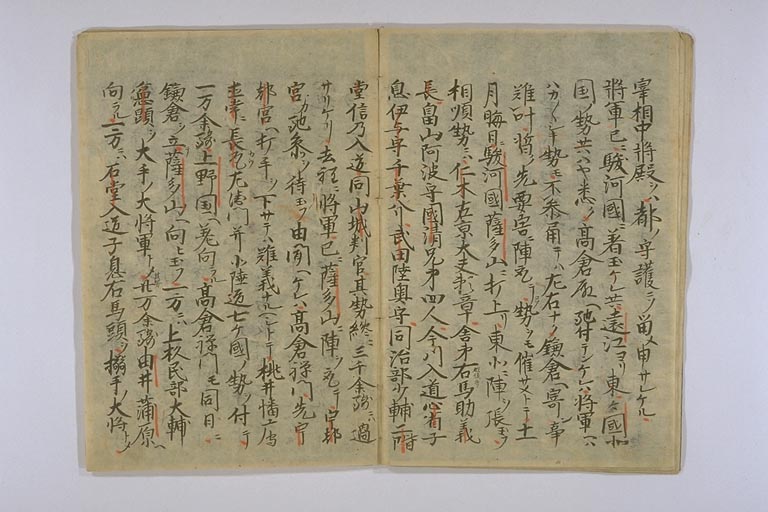 宰相中将殿ヲハ都ノ守護ニソ留メ申サレケル
将軍已ニ駿河國ニ著玉ケレ共遠江ヨリ東々國北
国ノ勢共ハヤ悉ク高倉殿ヘ馳付テンケレハ将軍ヘハ
ハカ〱シキ勢モ不参角テハ左右ナク鎌倉ヘ寄ン事
難叶将先要害ニ陣ヲ取テ勢ヲモ催サメトテ十一
月晦日駿河國薩多山ニ打上リ東北ニ陣ヲ張玉フ
相順勢ニハ仁木左京大夫頼章舎弟右馬助義
長畠山阿波守國清兄弟四人今川入道心省子
息伊与守千葉介武田陸奥守同治部少輔二階
堂信乃入道同山城判官其勢終ニ三千余騎ニハ過
サリケリ去程ニ将軍已ニ薩多山ニ陣ヲ取テ宇都
宮カ馳参ヲ待玉フ由聞ヘケレハ高倉禅門先宇
都宮ヘ打手ヲ下サテハ難義ナルヘシトテ桃井播广守
並ニ長尾左衛門并北陸道七ケ國ノ勢ヲ付テ
一万余騎上野国ヘ差向ラル高倉禅門モ同日ニ
鎌倉ヲ立薩多山ヘ向玉フ一方ニハ上杦民部大輔
憲顕ヲ大手ノ大将軍トメ廿万余騎由井蒲原ヘ
向ラル一方ニハ石堂入道子息右馬頭ヲ搦手ノ大将トメ